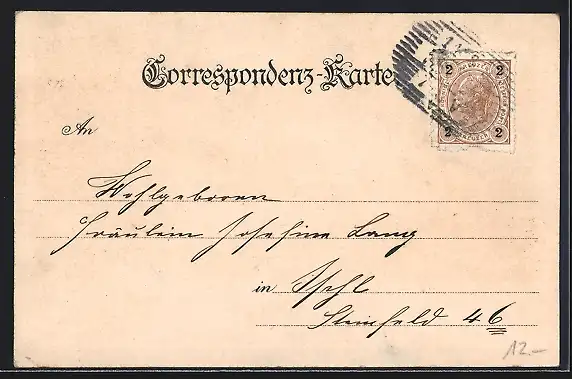 Correspondenz-Karte
2 2
2 2
An
Wohlgeboren
Fräulein Josefine Lang
in Ischl
Steinfeld 46
12.-